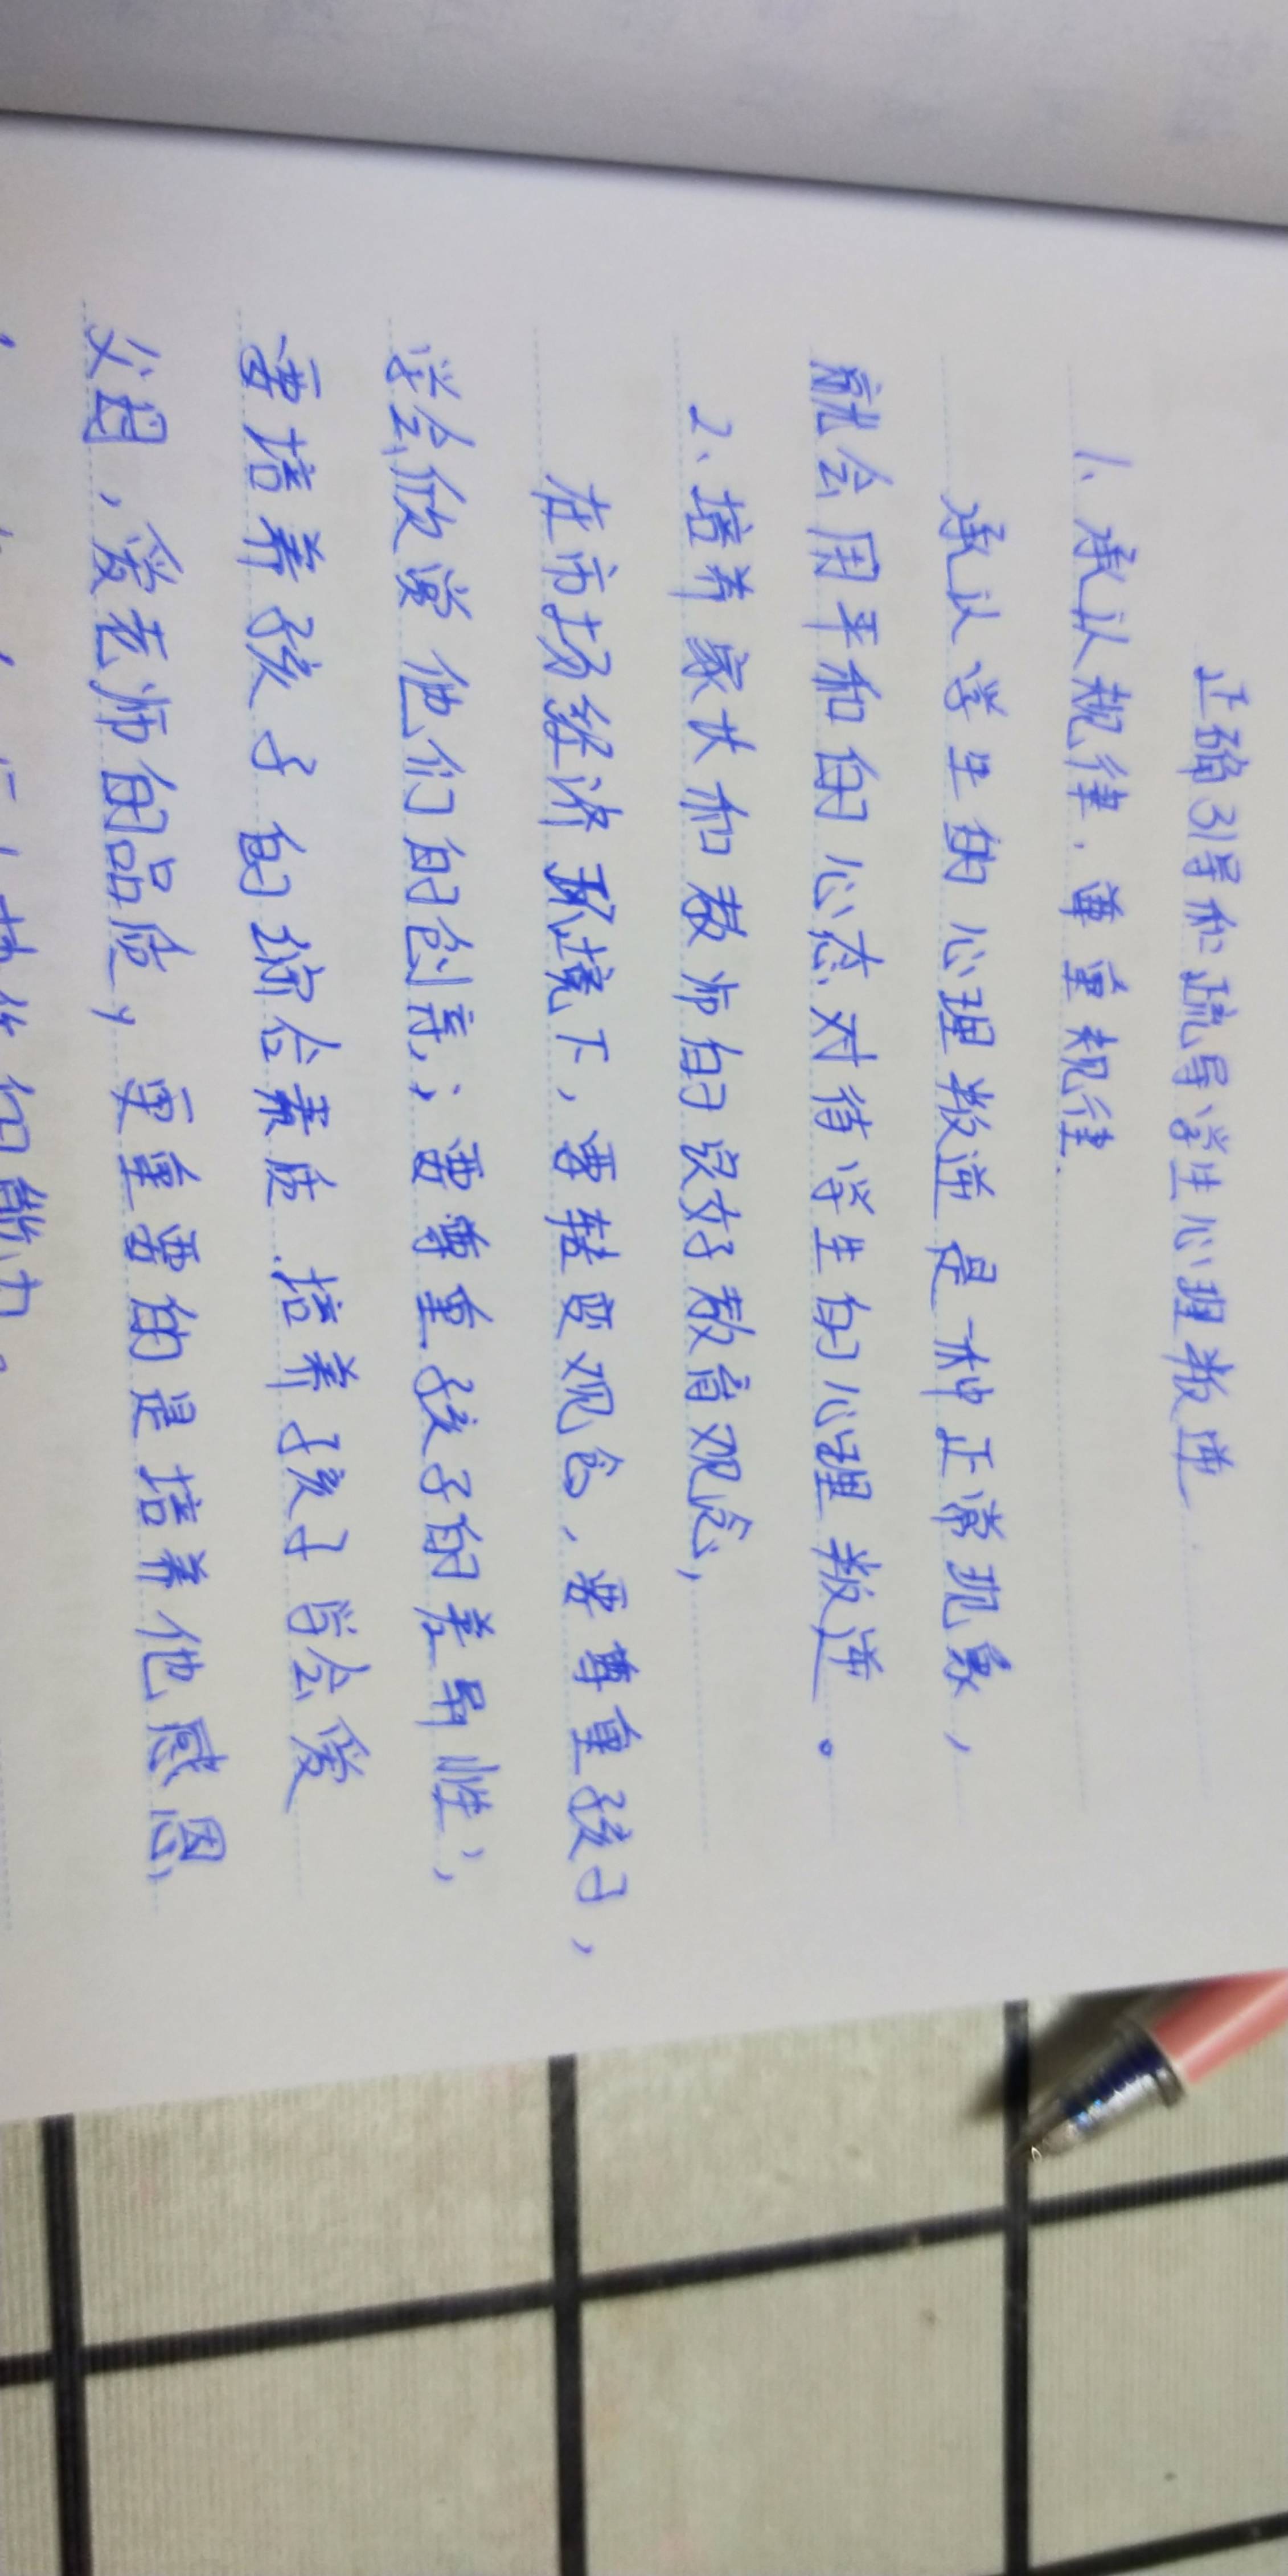 正确引导和疏导学生心理叛逆.
1、承认规律，尊重规律.
承认学生的心理叛逆是一种正常现象，
就会用平和的心态对待学生的心理叛逆。
2、培养家长和教师的良好教育观念，
在市场经济环境下，要转变观念，要尊重孩子，
学会欣赏他们的创意；要尊重孩子的差异性；
要培养孩子的综合素质.培养孩子学会爱
父母，爱老师的品质，更重要的是培养他感恩
能力。